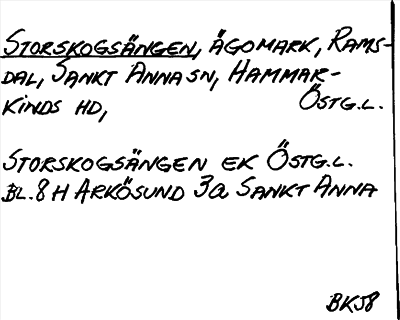 STORSKOGSÄNGEN, ÄGOMARK, RAMS-
DAL, SANKT ANNA SN, HAMMAR-
KINDS HD, ÖSTG.L.
STORSKOGSÄNGEN EK ÖSTG.L.
BL. 8 H ARKÖSUND 3a SANKT ANNA
BKJ8